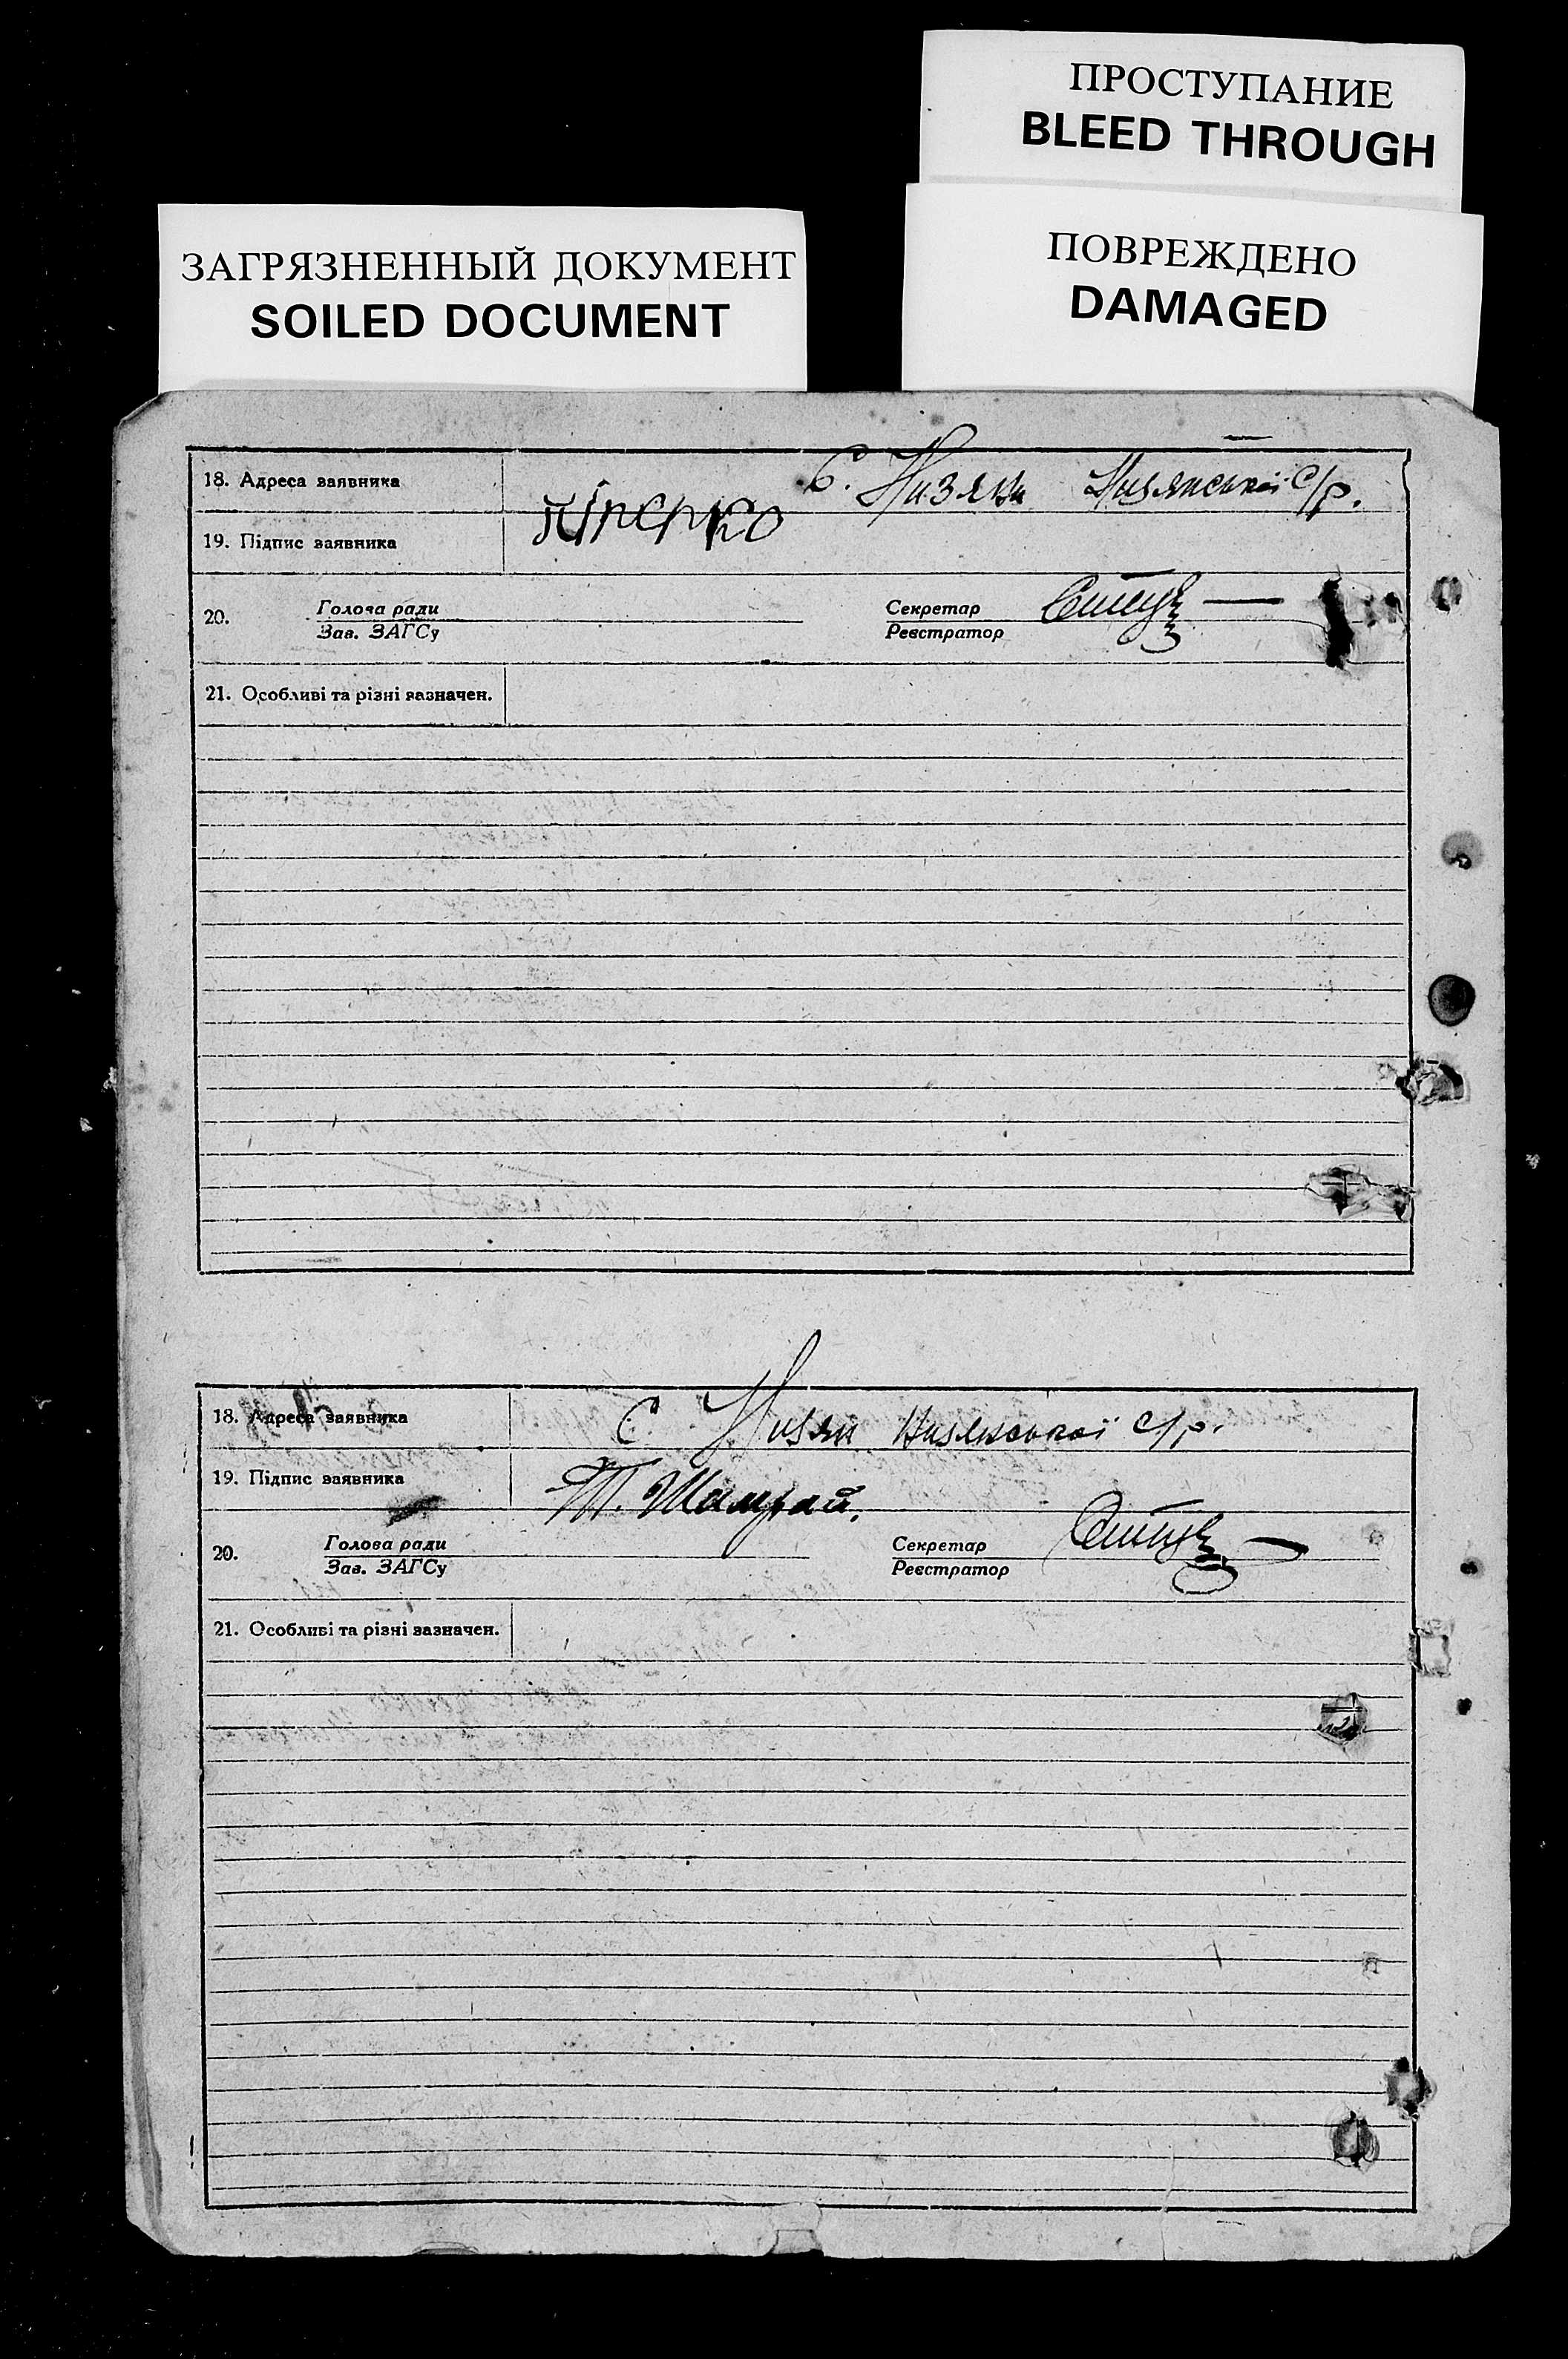 ПРОСТУПАНИЕ
BLEED THROUGH
ЗАГРЯЗНЕННЫЙ ДОКУМЕНТ
SOILED DOCUMENT
ПОВРЕЖДЕНО
DAMAGED
18. Адреса заявника С. Низяни Низянської с/р.
19. Підпис заявника
20. Голова ради Секретар
Зав. ЗАГСу Реєстратор
21. Особливі та різні зазначен.
18. Адреса заявника С. Низяни Низянської с/р.
19. Підпис заявника Т. Шамрай.
20. Голова ради Секретар
Зав. ЗАГСу Реєстратор
21. Особливі та різні зазначен.